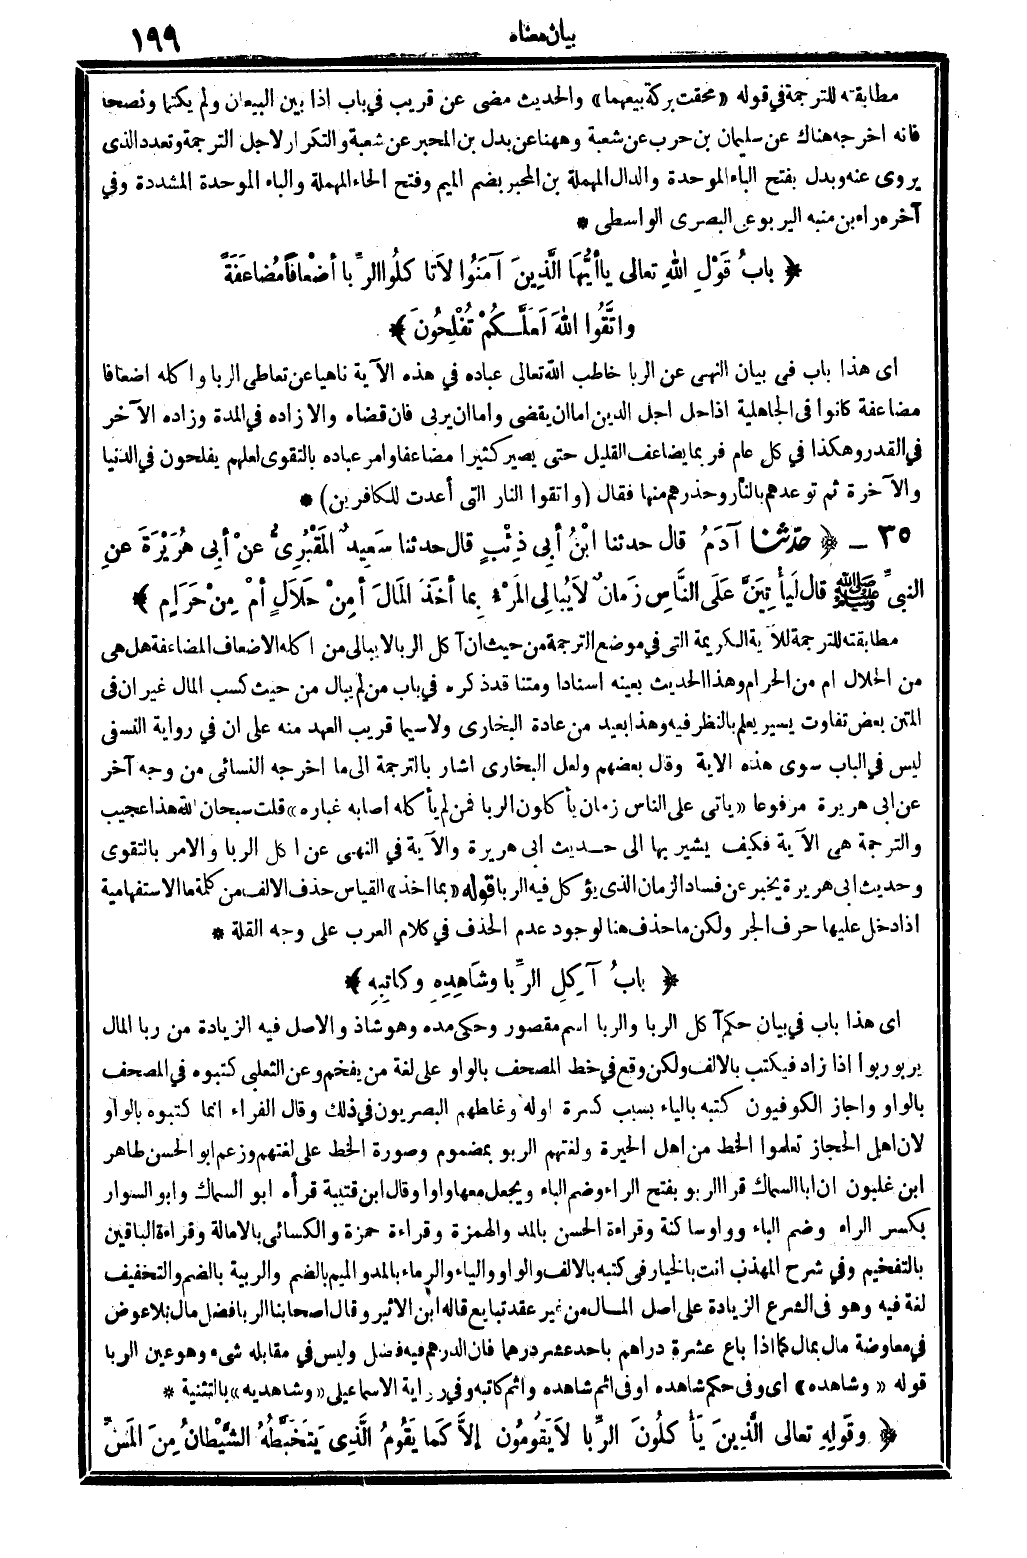 بيان معناه ١٩٩
مطابقته للترجمة في قوله «محقت بركة بيعهما» والحديث مضى عن قريب في باب اذا بين البيعان ولم يكتما ونصحا
فانه اخرجه هناك عن سليمان بن حرب عن شعبة وههنا عن بدل بن المحبر عن شعبة والتكرار لاجل الترجمة وتعدد الذى
يروى عنه وبدل بفتح الباء الموحدة والدال المهملة بن المحبر بضم الميم وفتح الحاء المهملة والباء الموحدة المشددة وفي
آخره راء بن منبه اليربوعى البصرى الواسطى *
﴿ بابُ قَوْلِ اللهِ تعالى ياأَيُّهَا الَّذِينَ آمَنُوا لاَ تَأكلُوا الرِّبا أضْعافًا مُضاعَفَةً
واتَّقُوا اللهَ لَعَلَّكُمْ تُفْلِحُونَ ﴾
اى هذا باب فى بيان النهى عن الربا خاطب الله تعالى عباده في هذه الآية ناهيا عن تعاطى الربا واكله اضعافا
مضاعفة كانوا فى الجاهلية اذا حل اجل الدين اما ان يقضى واما ان يربى فان قضاه والا زاده في المدة وزاده الآخر
في القدر وهكذا في كل عام فربما يضاعف القليل حتى يصير كثيرا مضاعفا وامر عباده بالتقوى لعلهم يفلحون في الدنيا
والآخرة ثم توعدهم بالنار وحذرهم منها فقال (واتقوا النار التى أعدت للكافرين) *
٣٥ ــ ﴿ حدّثنا آدَمُ قال حدثنا ابْنُ أبي ذِئْبٍ قال حدثنا سَعِيدٌ المَقْبُرِىُّ عنْ أبِى هُرَيْرَةَ عنِ
النبىِّ ﷺ قال لَيأْتِيَنَّ عَلَى النَّاسِ زَمانٌ لاَ يُبالِى المَرْءُ بِما أخَذَ المَالَ أمِنْ حَلاَلٍ أمْ مِنْ حَرَامٍ ﴾
مطابقته للترجمة للآية الكريمة التى في موضع الترجمة من حيث ان آكل الربا لا يبالى من اكله الاضعاف المضاعفة هل هى
من الحلال ام من الحرام وهذا الحديث بعينه اسنادا ومتنا قد ذكره في باب من لم يبال من حيث كسب المال غير ان فى
المتن بعض تفاوت يسير يعلم بالنظر فيه وهذا بعيد من عادة البخارى ولا سيما قريب العهد منه على ان في رواية النسفى
ليس في الباب سوى هذه الآية وقال بعضهم ولعل البخارى اشار بالترجمة الى ما اخرجه النسائى من وجه آخر
عن ابى هريرة مرفوعا «يأتى على الناس زمان يأكلون الربا فمن لم يأكله اصابه غباره» قلت سبحان الله هذا عجيب
والترجمة هى الآية فكيف يشير بها الى حديث ابى هريرة والآية في النهى عن اكل الربا والامر بالتقوى
وحديث ابى هريرة يخبر عن فساد الزمان الذى يؤكل فيه الربا قوله «بما اخذ» القياس حذف الالف من كلمة ما الاستفهامية
اذا دخل عليها حرف الجر ولكن ما حذف هنا لوجود عدم الحذف في كلام العرب على وجه القلة *
﴿ بابُ آكِلِ الرِّبا وشَاهِدِهِ وكاتِبِهِ ﴾
اى هذا باب في بيان حكم آكل الربا والربا اسم مقصور وحكى مده وهو شاذ والاصل فيه الزيادة من ربا المال
يربو ربوا اذا زاد فيكتب بالالف ولكن وقع في خط المصحف بالواو على لغة من يفخم وعن الثعلبى كتبوه في المصحف
بالواو واجاز الكوفيون كتبه بالياء بسبب كسرة اوله وغلطهم البصريون في ذلك وقال الفراء انما كتبوه بالواو
لان اهل الحجاز تعلموا الخط من اهل الحيرة ولغتهم الربو بمضموم وصورة الخط على لغتهم وزعم ابو الحسن طاهر
ابن غلبون ان ابا السماك قرا الربو بفتح الراء وضم الباء ويجعل معها واوا وقال ابن قتيبة قرأه ابو السماك وابو السوار
بكسر الراء وضم الباء وواو ساكنة وقراءة الحسن بالمد والهمزة وقراءة حمزة والكسائى بالامالة وقراءة الباقين
بالتفخيم وفي شرح المهذب انت بالخيار في كتبه بالالف والواو والياء والرماء بالمد والميم بالضم والربية بالضم والتخفيف
لغة فيه وهو فى الشرع الزيادة على اصل المال من غير عقد تبايع قاله ابن الاثير وقال اصحابنا الربا فضل مال بلا عوض
في معاوضة مال بمال كما اذا باع عشرة دراهم باحد عشر درهما فان الدرهم فيه فضل وليس في مقابله شىء وهو عين الربا
قوله «وشاهده» اى وفى حكم شاهده او فى اثم شاهده واثم كاتبه وفي رواية الاسماعيلى «وشاهديه» بالتثنية *
﴿ وقَولِهِ تعالى الَّذِينَ يَأْكلُونَ الرِّبا لاَ يَقُومُونَ إلاَّ كَما يَقُومُ الَّذِى يَتَخَبَّطُهُ الشَّيْطانُ مِنَ المَسِّ